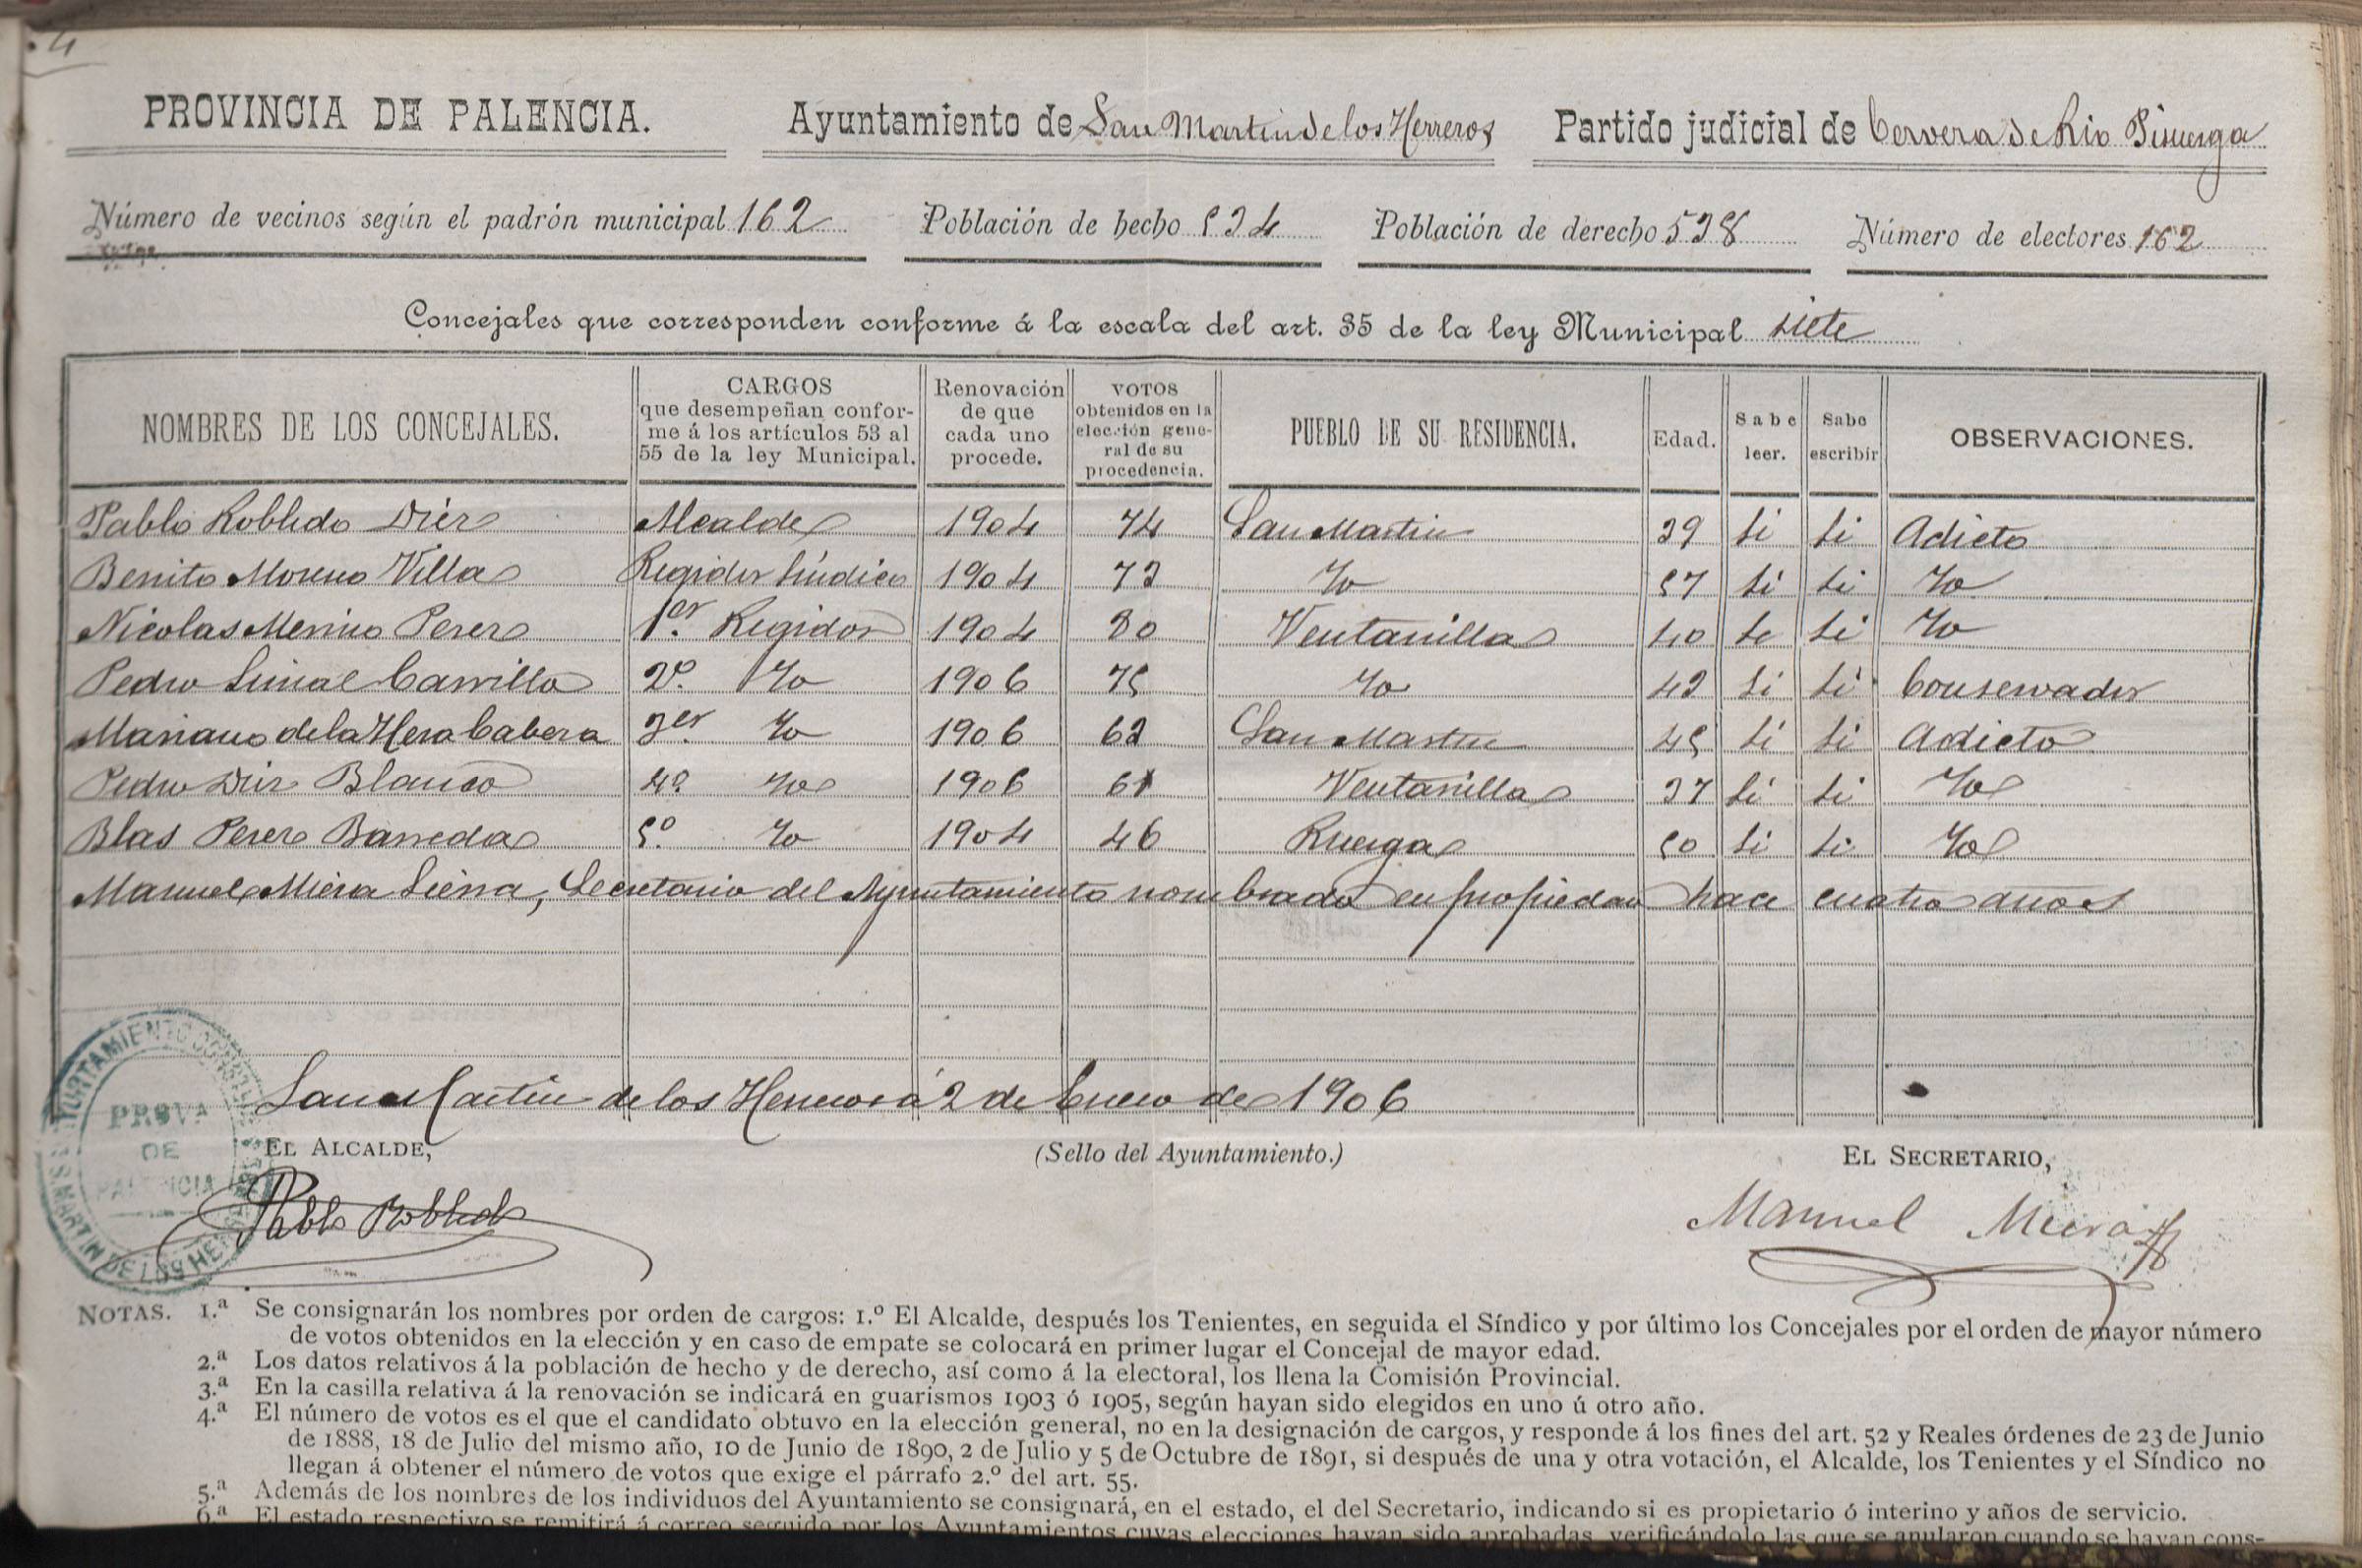 4
PROVINCIA DE PALENCIA. Ayuntamiento de San Martin de los Herreros Partido judicial de Cervera de Rio Pisuerga
Número de vecinos según el padrón municipal 162 Población de hecho 534 Población de derecho 538 Número de electores 162
Concejales que corresponden conforme á la escala del art. 35 de la ley Municipal siete
NOMBRES DE LOS CONCEJALES. CARGOS que desempeñan conforme á los artículos 53 al 55 de la ley Municipal. Renovación de que cada uno procede. VOTOS obtenidos en la elección general de su procedencia. PUEBLO DE SU RESIDENCIA. Edad. Sabe leer. Sabe escribir OBSERVACIONES.
Pablo Robledo Diez Alcalde 1904 74 San Martin 39 si si Adicto
Benito Moreno Villa Regidor Síndico 1904 73 Yo 57 si si Yo
Nicolas Merino Perez 1er. Regidor 1904 80 Ventanilla 40 si si Yo
Pedro Simal Carrillo 2º. Yo 1906 75 Yo 43 si si Conservador
Mariano de la Hera Cabeza 3er. Yo 1906 63 San Martin 45 si si Adicto
Pedro Diez Blanco 4º Yo 1906 61 Ventanilla 37 si si Yo
Blas Perez Barreda 5º. Yo 1904 46 Ruerga 50 si si Yo
Manuel Miera Sierra, Secretario del Ayuntamiento nombrado en propiedad hace cuatro años
San Martin de los Herreros á 2 de Enero de 1906
EL ALCALDE, (Sello del Ayuntamiento.) EL SECRETARIO,
Pablo Robledo Manuel Miera
PROVA DE PALENCIA
NOTAS. 1.ª Se consignarán los nombres por orden de cargos: 1.º El Alcalde, después los Tenientes, en seguida el Síndico y por último los Concejales por el orden de mayor número
de votos obtenidos en la elección y en caso de empate se colocará en primer lugar el Concejal de mayor edad.
2.ª Los datos relativos á la población de hecho y de derecho, así como á la electoral, los llena la Comisión Provincial.
3.ª En la casilla relativa á la renovación se indicará en guarismos 1903 ó 1905, según hayan sido elegidos en uno ú otro año.
4.ª El número de votos es el que el candidato obtuvo en la elección general, no en la designación de cargos, y responde á los fines del art. 52 y Reales órdenes de 23 de Junio
de 1888, 18 de Julio del mismo año, 10 de Junio de 1890, 2 de Julio y 5 de Octubre de 1891, si después de una y otra votación, el Alcalde, los Tenientes y el Síndico no
llegan á obtener el número de votos que exige el párrafo 2.º del art. 55.
5.ª Además de los nombres de los individuos del Ayuntamiento se consignará, en el estado, el del Secretario, indicando si es propietario ó interino y años de servicio.
6.ª El estado respectivo se remitirá á correo seguido por los Ayuntamientos cuyas elecciones hayan sido aprobadas, verificándolo las que se anularon cuando se hayan cons-